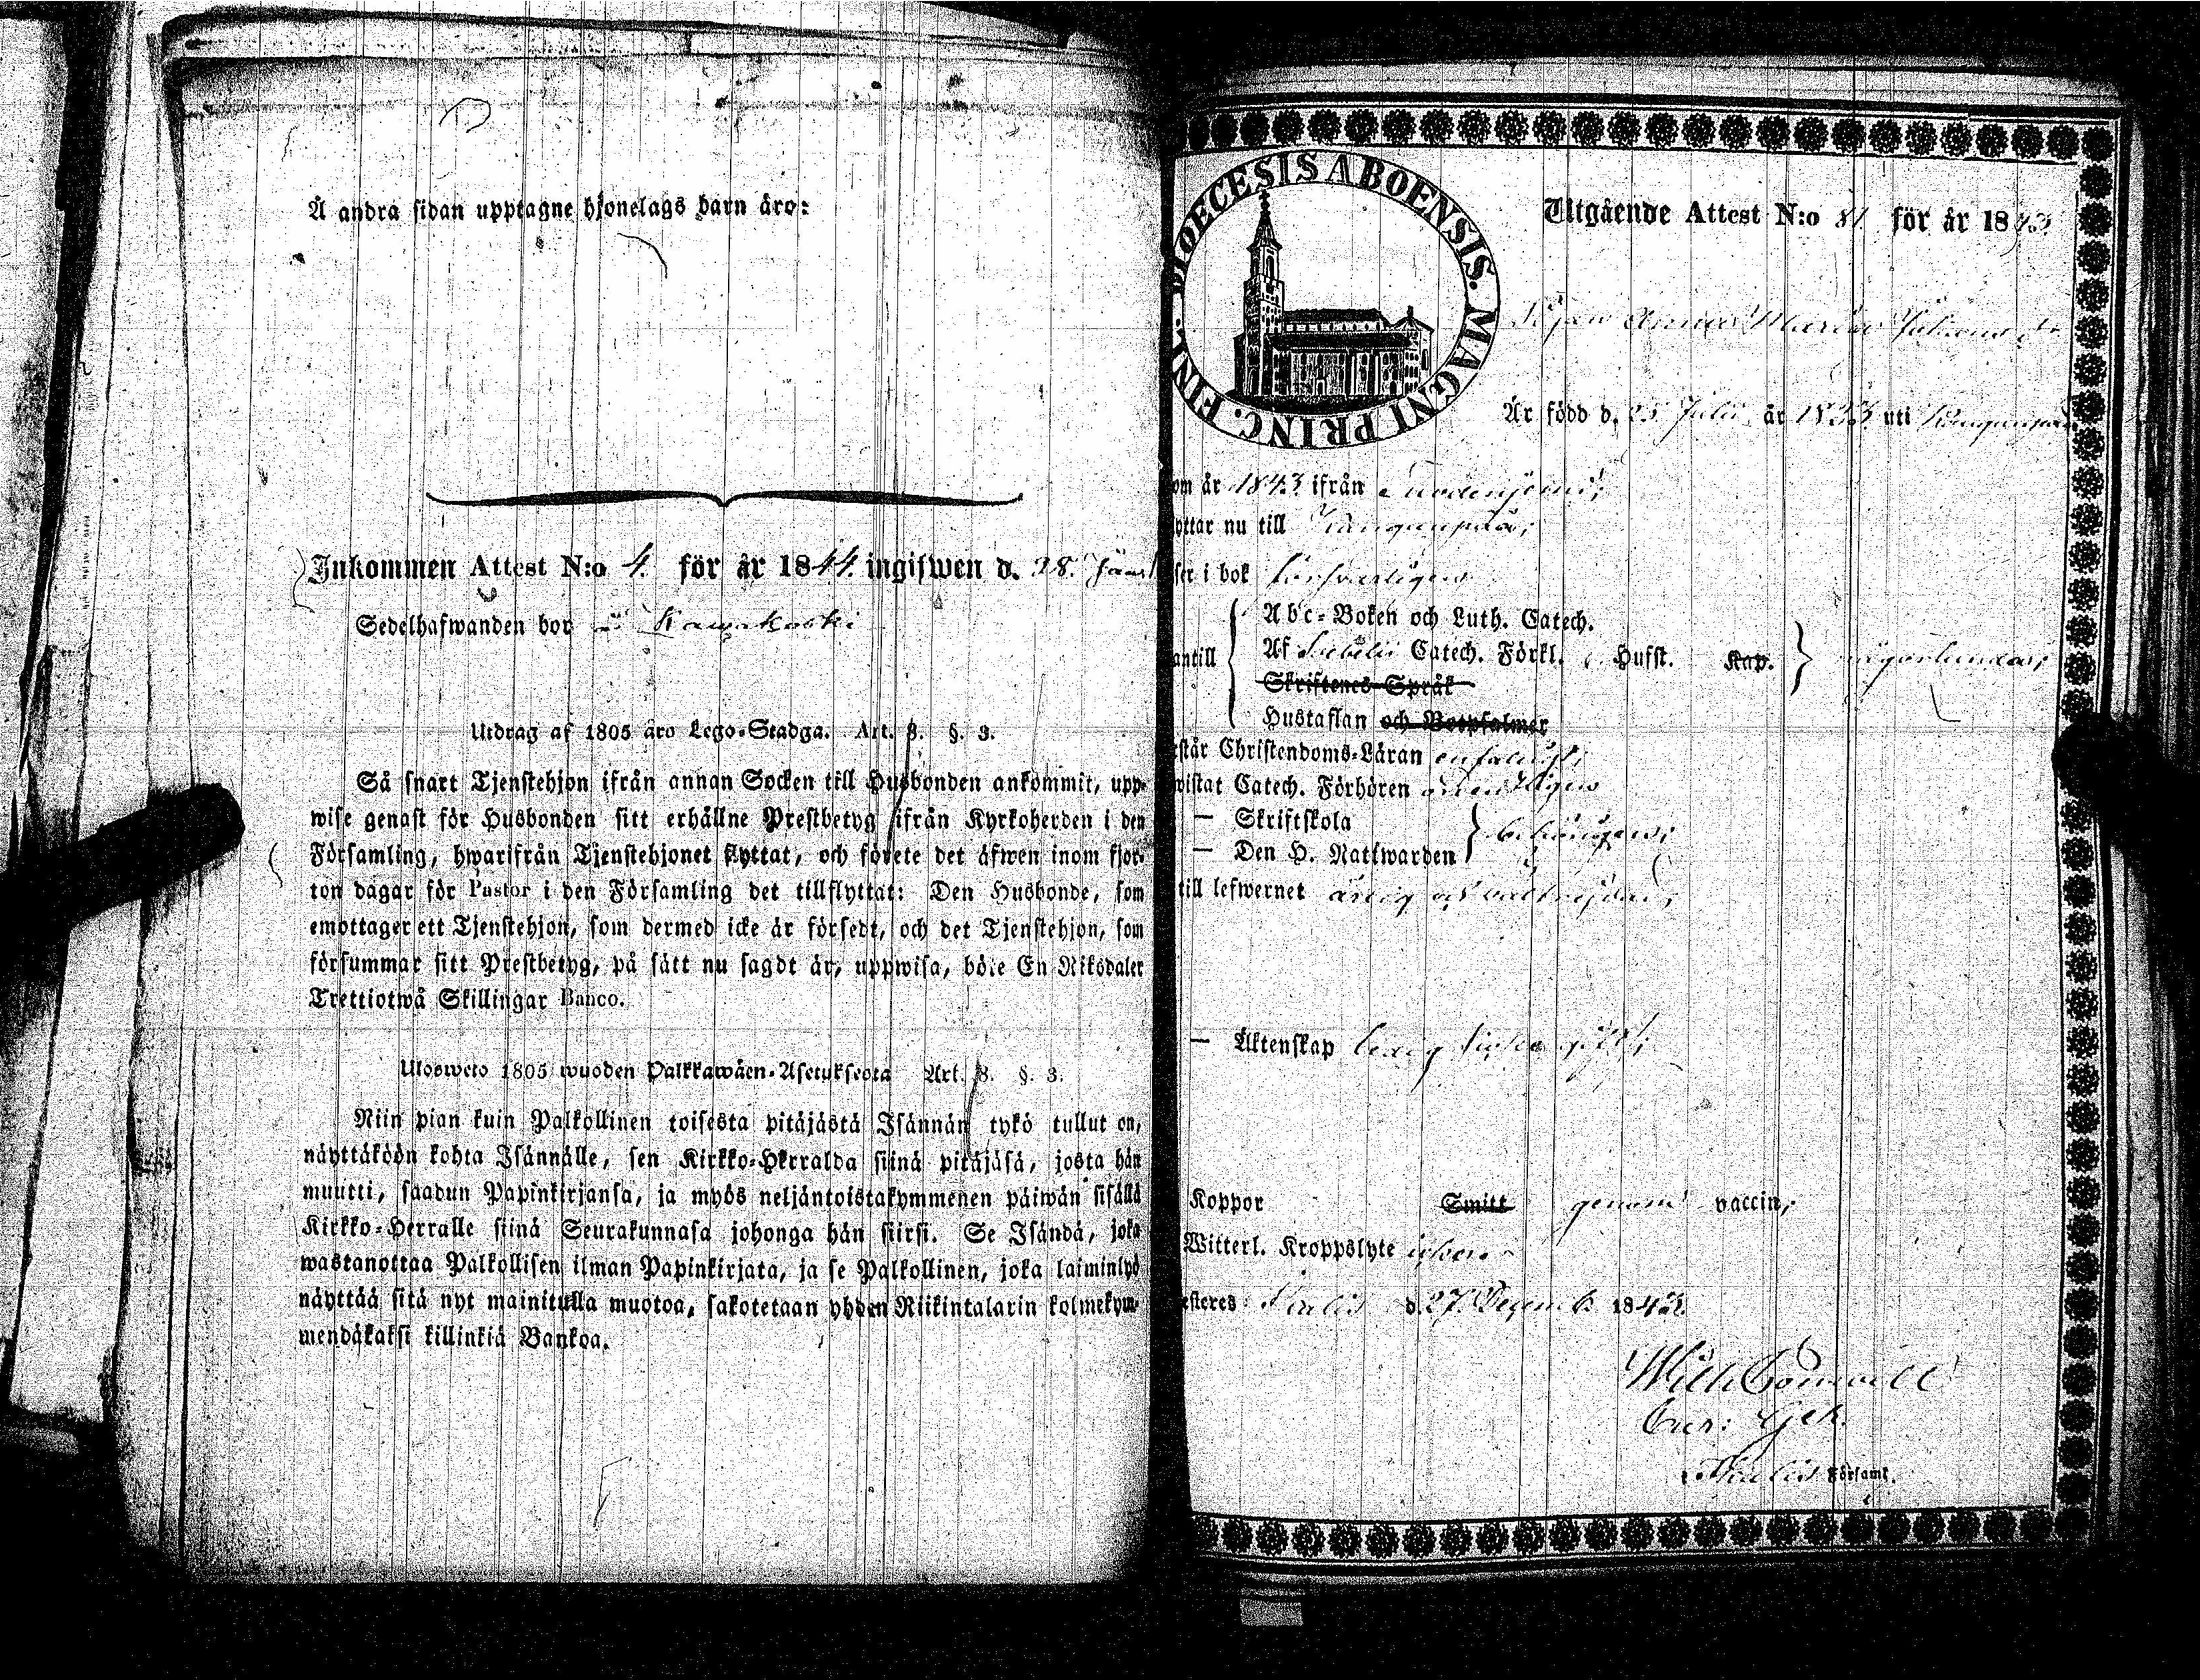 Å andra sidan upptagne hjonelags barn äro:
Inkommen Attest N:o 4. för år 1844. ingifwen d. 28.
Sedelhafwanden bor i Kawakoski
Utdrag af 1805 års Lego-Stadga. Art. 3. §. 3.
Så snart Tjenstehjon ifrån annan Socken till Husbonden ankommit, upp-
wise genast för Husbonden sitt erhållne Prestbetyg ifrån Kyrkoherden i den
Församling, hwarifrån Tjenstehjonet flyttat, och förete det äfwen inom fjor-
ton dagar för Pastor i den Församling det tillflyttat: Den Husbonde, som
emottager ett Tjenstehjon, som dermed icke är försedt, och det Tjenstehjon, som
försummar sitt Prestbetyg, på sätt nu sagdt är, uppwisa, böte En Riksdaler
Trettiotwå Skillingar Banco.
Ulosweto 1805 wuoden Palkkawäen-Asetuksesta Art. 3. §. 3.
Niin pian kuin Palkollinen toisesta pitäjästä Isännän tykö tullut on,
näyttäköön kohta Isännälle, sen Kirkko-Herralda siinä pitäjäsä, josta hän
muutti, saadun Papinkirjansa, ja myös neljäntoistakymmenen päiwän sisällä
Kirkko-Herralle siinä Seurakunnasa johonga hän siirsi. Se Isändä, joka
wastanottaa Palkollisen ilman Papinkirjata, ja se Palkollinen, joka laiminlyö
näyttää sitä nyt mainitulla muotoa, sakotetaan yhden Riikintalarin kolmekym-
mendäkaksi killinkiä Bankoa.
DIOECESIS ABOENSIS. MAGNI PRINC. FINL.
Utgående Attest N:o 81 för år 1843
Pigan Anna Maria
Är född d. 25 Julii år 1823 uti Kangunpää
om år 1843 ifrån Suodenjemi;
yttar nu till Kangunpää;
ser i bok försvarligen
antill
Abc-Boken och Luth. Catech.
Af Svebelii Catech. Förkl. Hufst. Kap. någorlunda;
Skriftenes Språk
Hustaflan och Botpsalmer
står Christendoms-Läran enfaldigt;
wistat Catech. Förhören ordentligen
— Skriftskola
— Den H. Nattwarden behörigen;
till lefwernet ärlig och välfrejdad;
— Äktenskap ledig
Koppor Smitt genom vaccin;
Witterl. Kroppslyte
esteres d. 27. Decemb. 1843.
Församl.